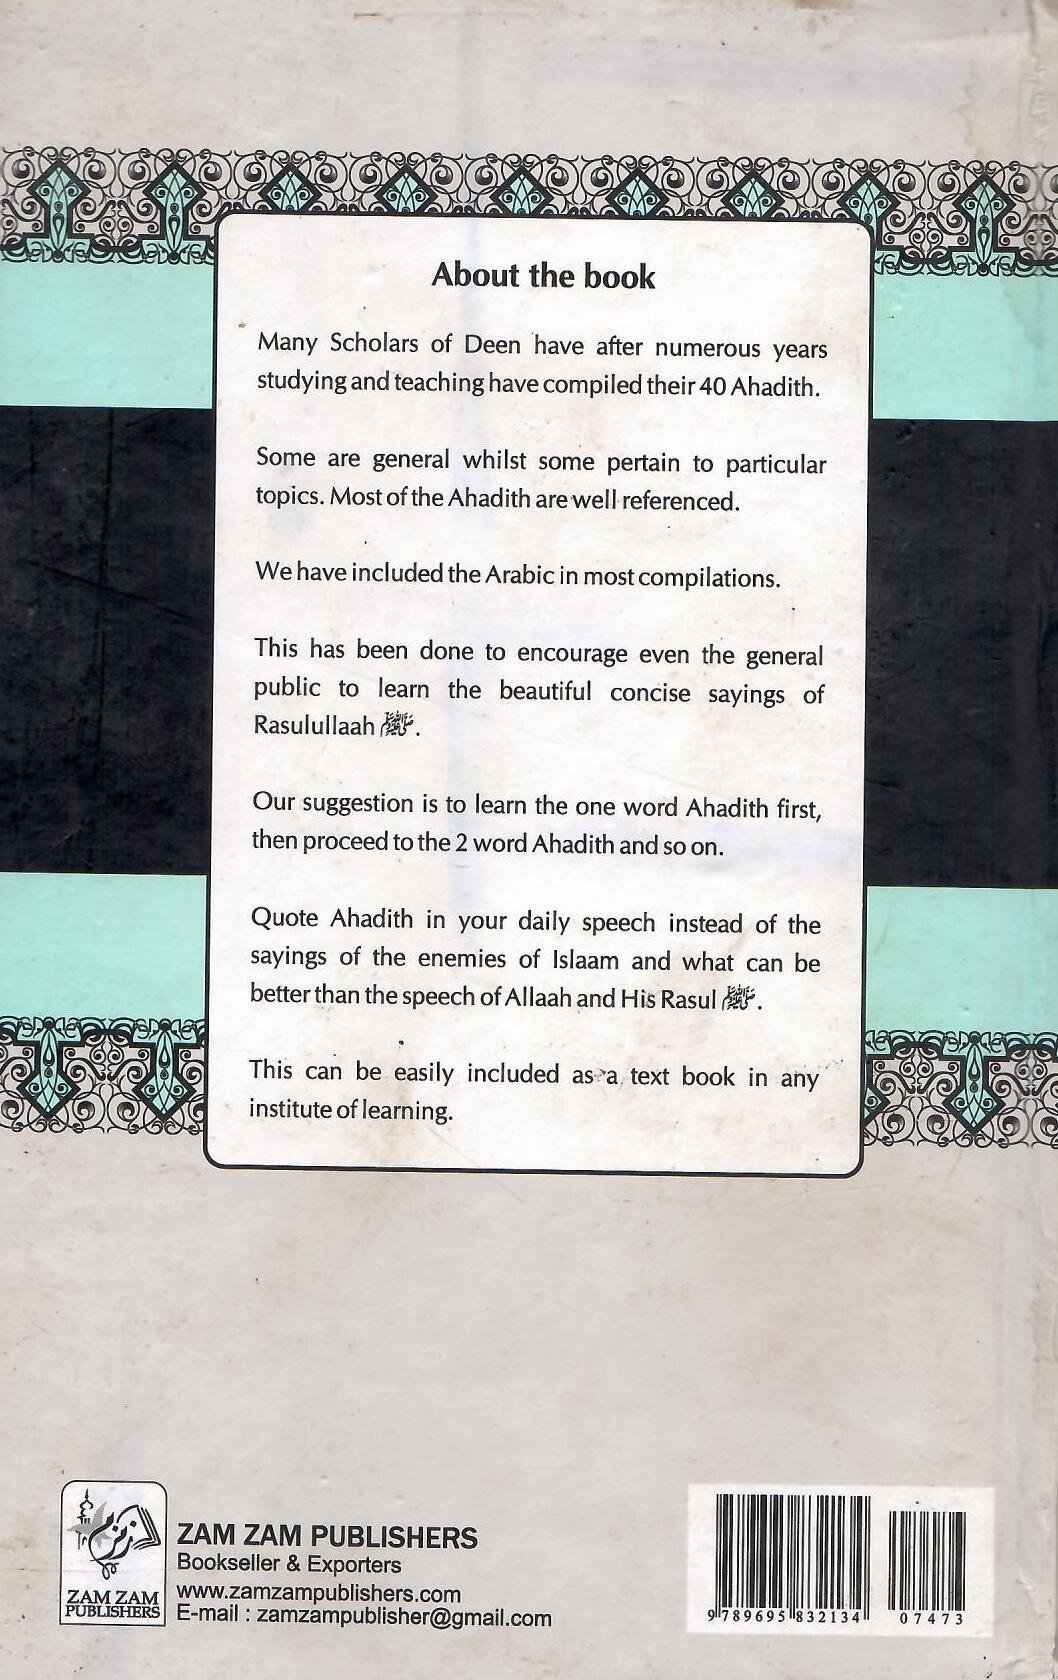 About the book
Many Scholars of Deen have after numerous years
studying and teaching have compiled their 40 Ahadith.
Some are general whilst some pertain to particular
topics. Most of the Ahadith are well referenced.
We have included the Arabic in most compilations.
This has been done to encourage even the general
public to learn the beautiful concise sayings of
Rasulullaah ﷺ.
Our suggestion is to learn the one word Ahadith first,
then proceed to the 2 word Ahadith and so on.
Quote Ahadith in your daily speech instead of the
sayings of the enemies of Islaam and what can be
better than the speech of Allaah and His Rasul ﷺ.
This can be easily included as a text book in any
institute of learning.
ZAM ZAM
PUBLISHERS
ZAM ZAM PUBLISHERS
Bookseller & Exporters
www.zamzampublishers.com
E-mail : zamzampublisher@gmail.com
9 789695 832134
07473